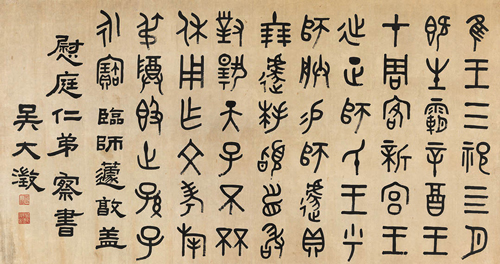 隹王三祀四月
既生霸辛酉王
才周客新宮王
正師氏王乎
師朕易師遽貝
朋遽拜首敢
對揚天子不
休用乍文考
尊世孫子
永寶 臨師遽敦蓋
慰庭仁弟察書
吳大澂